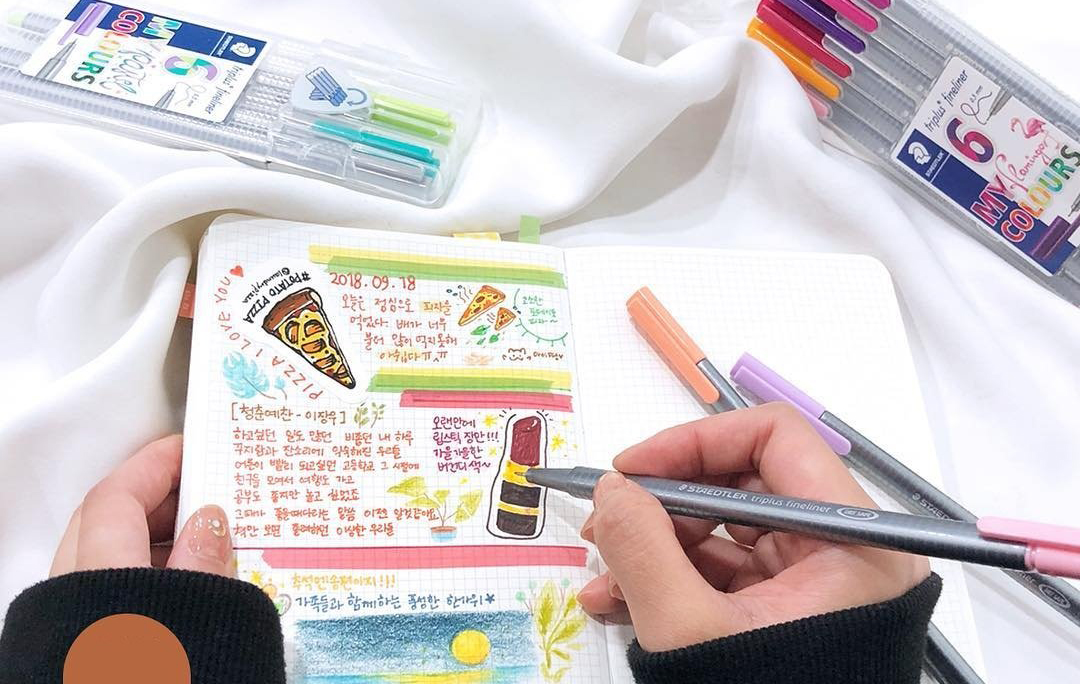 MY
COLOURS
5
triplus® fineliner
STAEDTLER
triplus® fineliner
0.3 mm
STAEDTLER
6
MY
flamingo
COLOURS
PIZZA I LOVE YOU
#POTATO PIZZA
2018.09.18
오늘은 점심으로 피자를
먹었다. 배가 너무
불러 많이 먹지못해
아쉽다ㅠ.ㅠ
[청춘예찬 - 이장우]
하고싶던 일도 많던 비좁던 내 하루
꾸지람과 잔소리에 익숙해진 우리들
어른이 빨리 되고싶던 고등학교 그 시절에
친구들 모여서 여행도 가고
공부도 좋지만 놀고 싶었죠
그때가 좋을때다라는 말씀 이젠 알것같아요
오랜만에
립스틱 장만!!!
가을가을한
버건디색~
추석엔 송편이지!!!
가족들과 함께하는 풍성한 한가위
STAEDTLER triplus fineliner
DRY SAFE
STAEDTLER